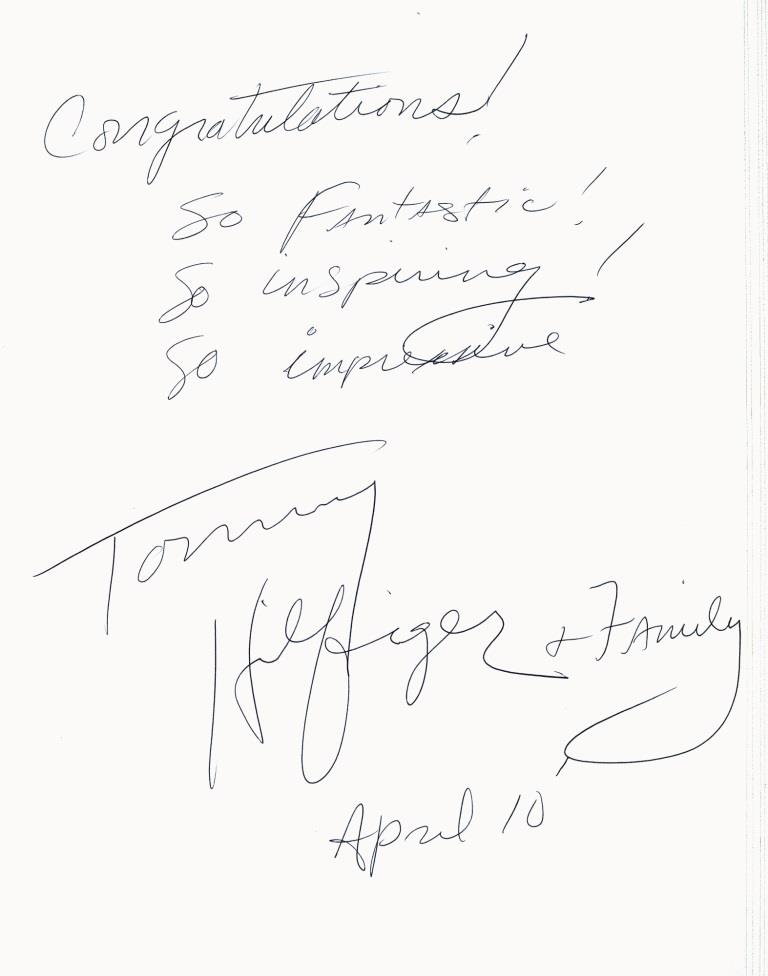 Congratulations!
So Fantastic!
So inspiring!
So impressive
Tommy
Hilfiger + Family
April 10